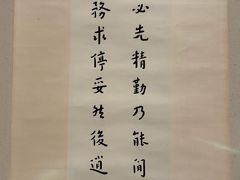 必先精勤乃能閒
務求停妥然後逍